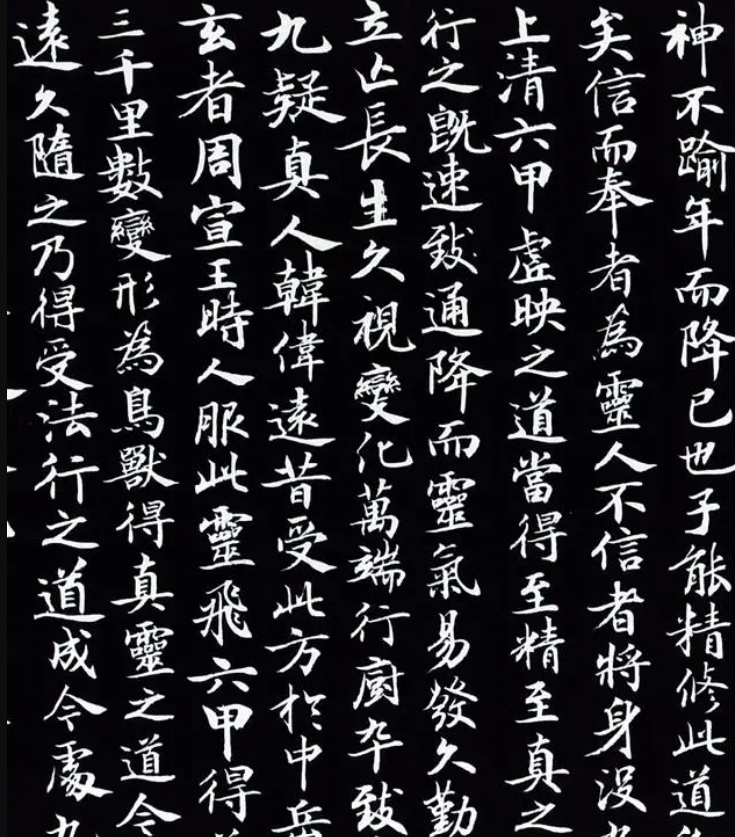 神不踰年而降已也子能精修此道
矣信而奉者為靈人不信者將身没
上清六甲虛映之道當得至精至真之
行之既速致通降而靈氣易發久勤
立亡長生久視變化萬端行廚卒致
九疑真人韓偉遠昔受此方於中岳
玄者周宣王時人服此靈飛六甲得
三千里數變形為鳥獸得真靈之道今
遠久隨之乃得受法行之道成今處九